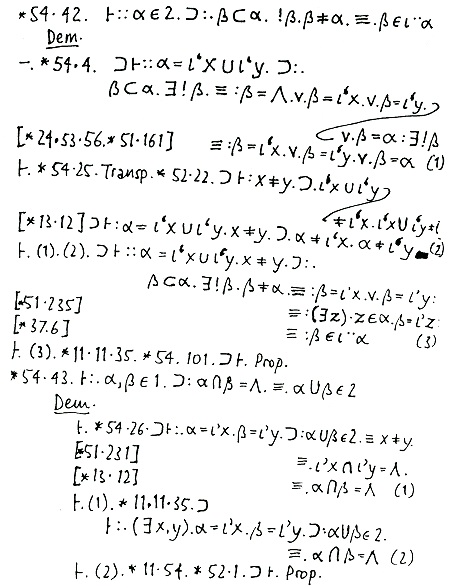 *54·42. ⊢::α∈2.⊃:.β⊂α. !β.β≠α.≡.β∈ι“α
Dem.
⊢.*54·4. ⊃⊢::α=ι‘x∪ι‘y.⊃:.
β⊂α.∃!β.≡:β=Λ.v.β=ι‘x.v.β=ι‘y.
v.β=α:∃!β
[*24·53·56.*51·161] ≡:β=ι‘x.v.β=ι‘y.v.β=α (1)
⊢.*54·25.Transp.*52·22.⊃⊢:x≠y.⊃.ι‘x∪ι‘y
≠ι‘x.ι‘x∪ι‘y≠ι
[*13·12]⊃⊢:α=ι‘x∪ι‘y.x≠y.⊃.α≠ι‘x.α≠ι‘y (2)
⊢.(1).(2).⊃⊢::α=ι‘x∪ι‘y.x≠y.⊃:.
β⊂α.∃!β.β≠α.≡:β=ι‘x.v.β=ι‘y:
[*51·235] ≡:(∃z).z∈α.β=ι‘z:
[*37·6] ≡:β∈ι“α (3)
⊢.(3).*11·11·35.*54.101.⊃⊢. Prop.
*54·43. ⊢:.α,β∈1.⊃:α∩β=Λ.≡.α∪β∈2
Dem.
⊢.*54·26.⊃⊢:.α=ι‘x.β=ι‘y.⊃:α∪β∈2.≡x≠y.
[*51·231] ≡.ι‘x∩ι‘y=Λ.
[*13·12] ≡.α∩β=Λ (1)
⊢.(1).*11.11·35.⊃
⊢:.(∃x,y).α=ι‘x.β=ι‘y.⊃:α∪β∈2.
≡.α∩β=Λ (2)
⊢.(2).*11·54.*52·1.⊃⊢. Prop.